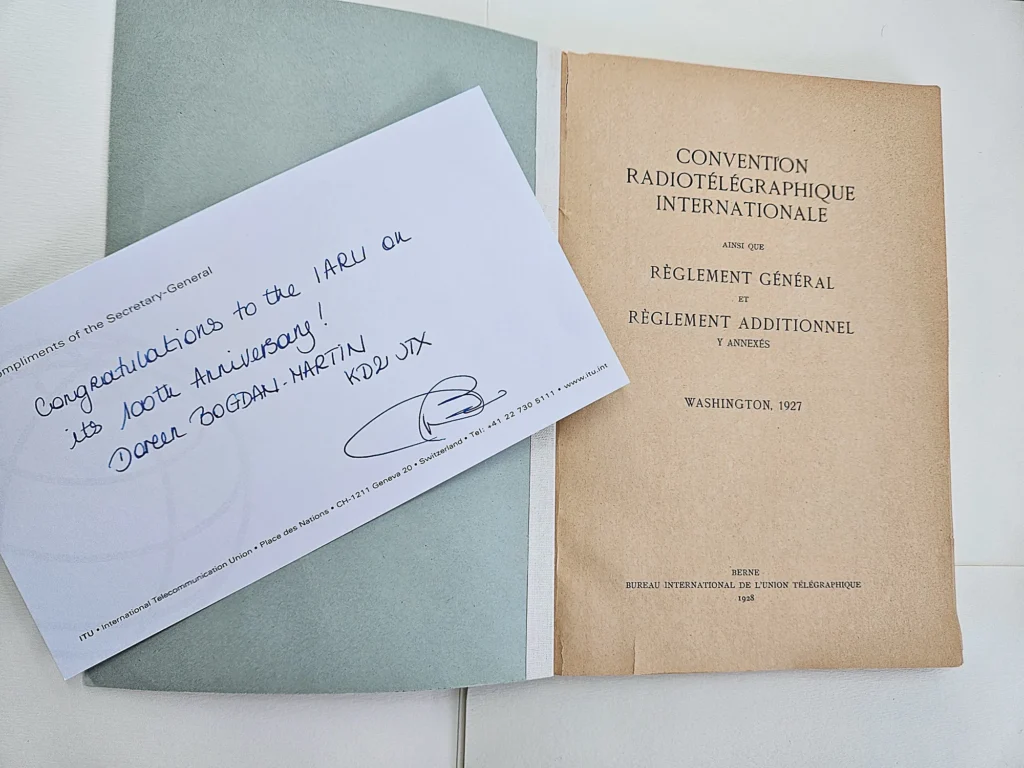 ompliments of the Secretary-General
Congratulations to the IARU on
its 100th Anniversary!
Doreen BOGDAN-MARTIN
KD2JTX
ITU • International Telecommunication Union • Place des Nations • CH-1211 Geneva 20 • Switzerland • Tel: +41 22 730 5111 • www.itu.int
CONVENTION
RADIOTÉLÉGRAPHIQUE
INTERNATIONALE
AINSI QUE
RÈGLEMENT GÉNÉRAL
ET
RÈGLEMENT ADDITIONNEL
Y ANNEXÉS
WASHINGTON, 1927
BERNE
BUREAU INTERNATIONAL DE L'UNION TÉLÉGRAPHIQUE
1928